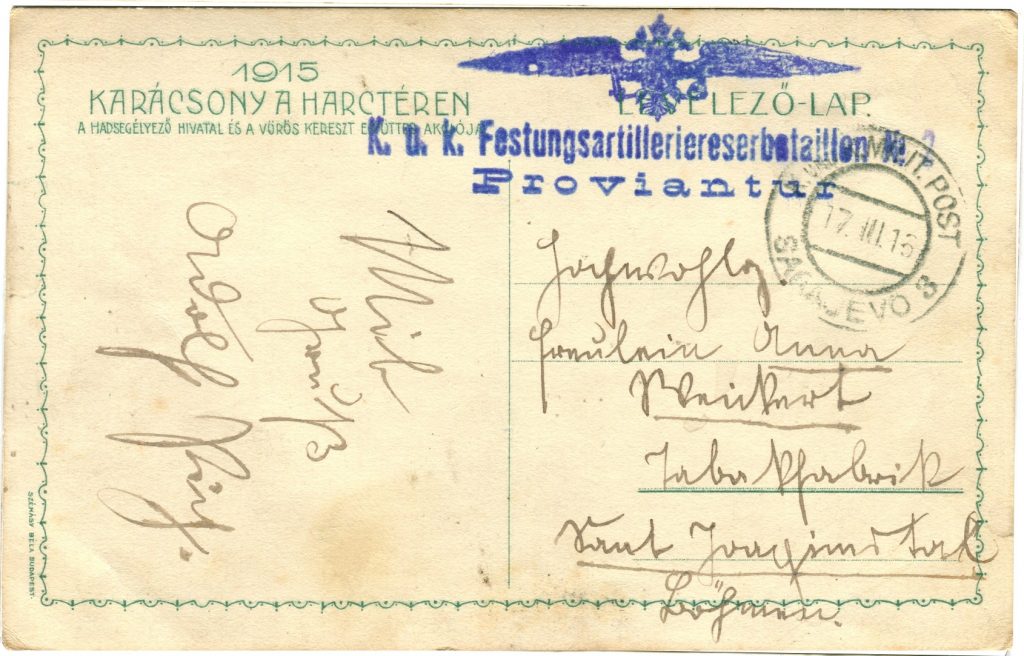 1915
KARÁCSONY A HARCTÉREN
A HADSEGÉLYEZŐ HIVATAL ÉS A VÖRÖS KERESZT EGYÜTTES AKCIÓJA
LEVELEZŐ-LAP.
K. u. k. Festungsartilleriereserbataillon Nr. 2
Proviantur
MILIT. POST
17.III.16
SARAJEVO 3
Hochwohlg.
Freulein Anna
Weikert
Tabakfabrik
Sant Joagimstal
Böhmen.
SZÉNÁSY BÉLA BUDAPEST.